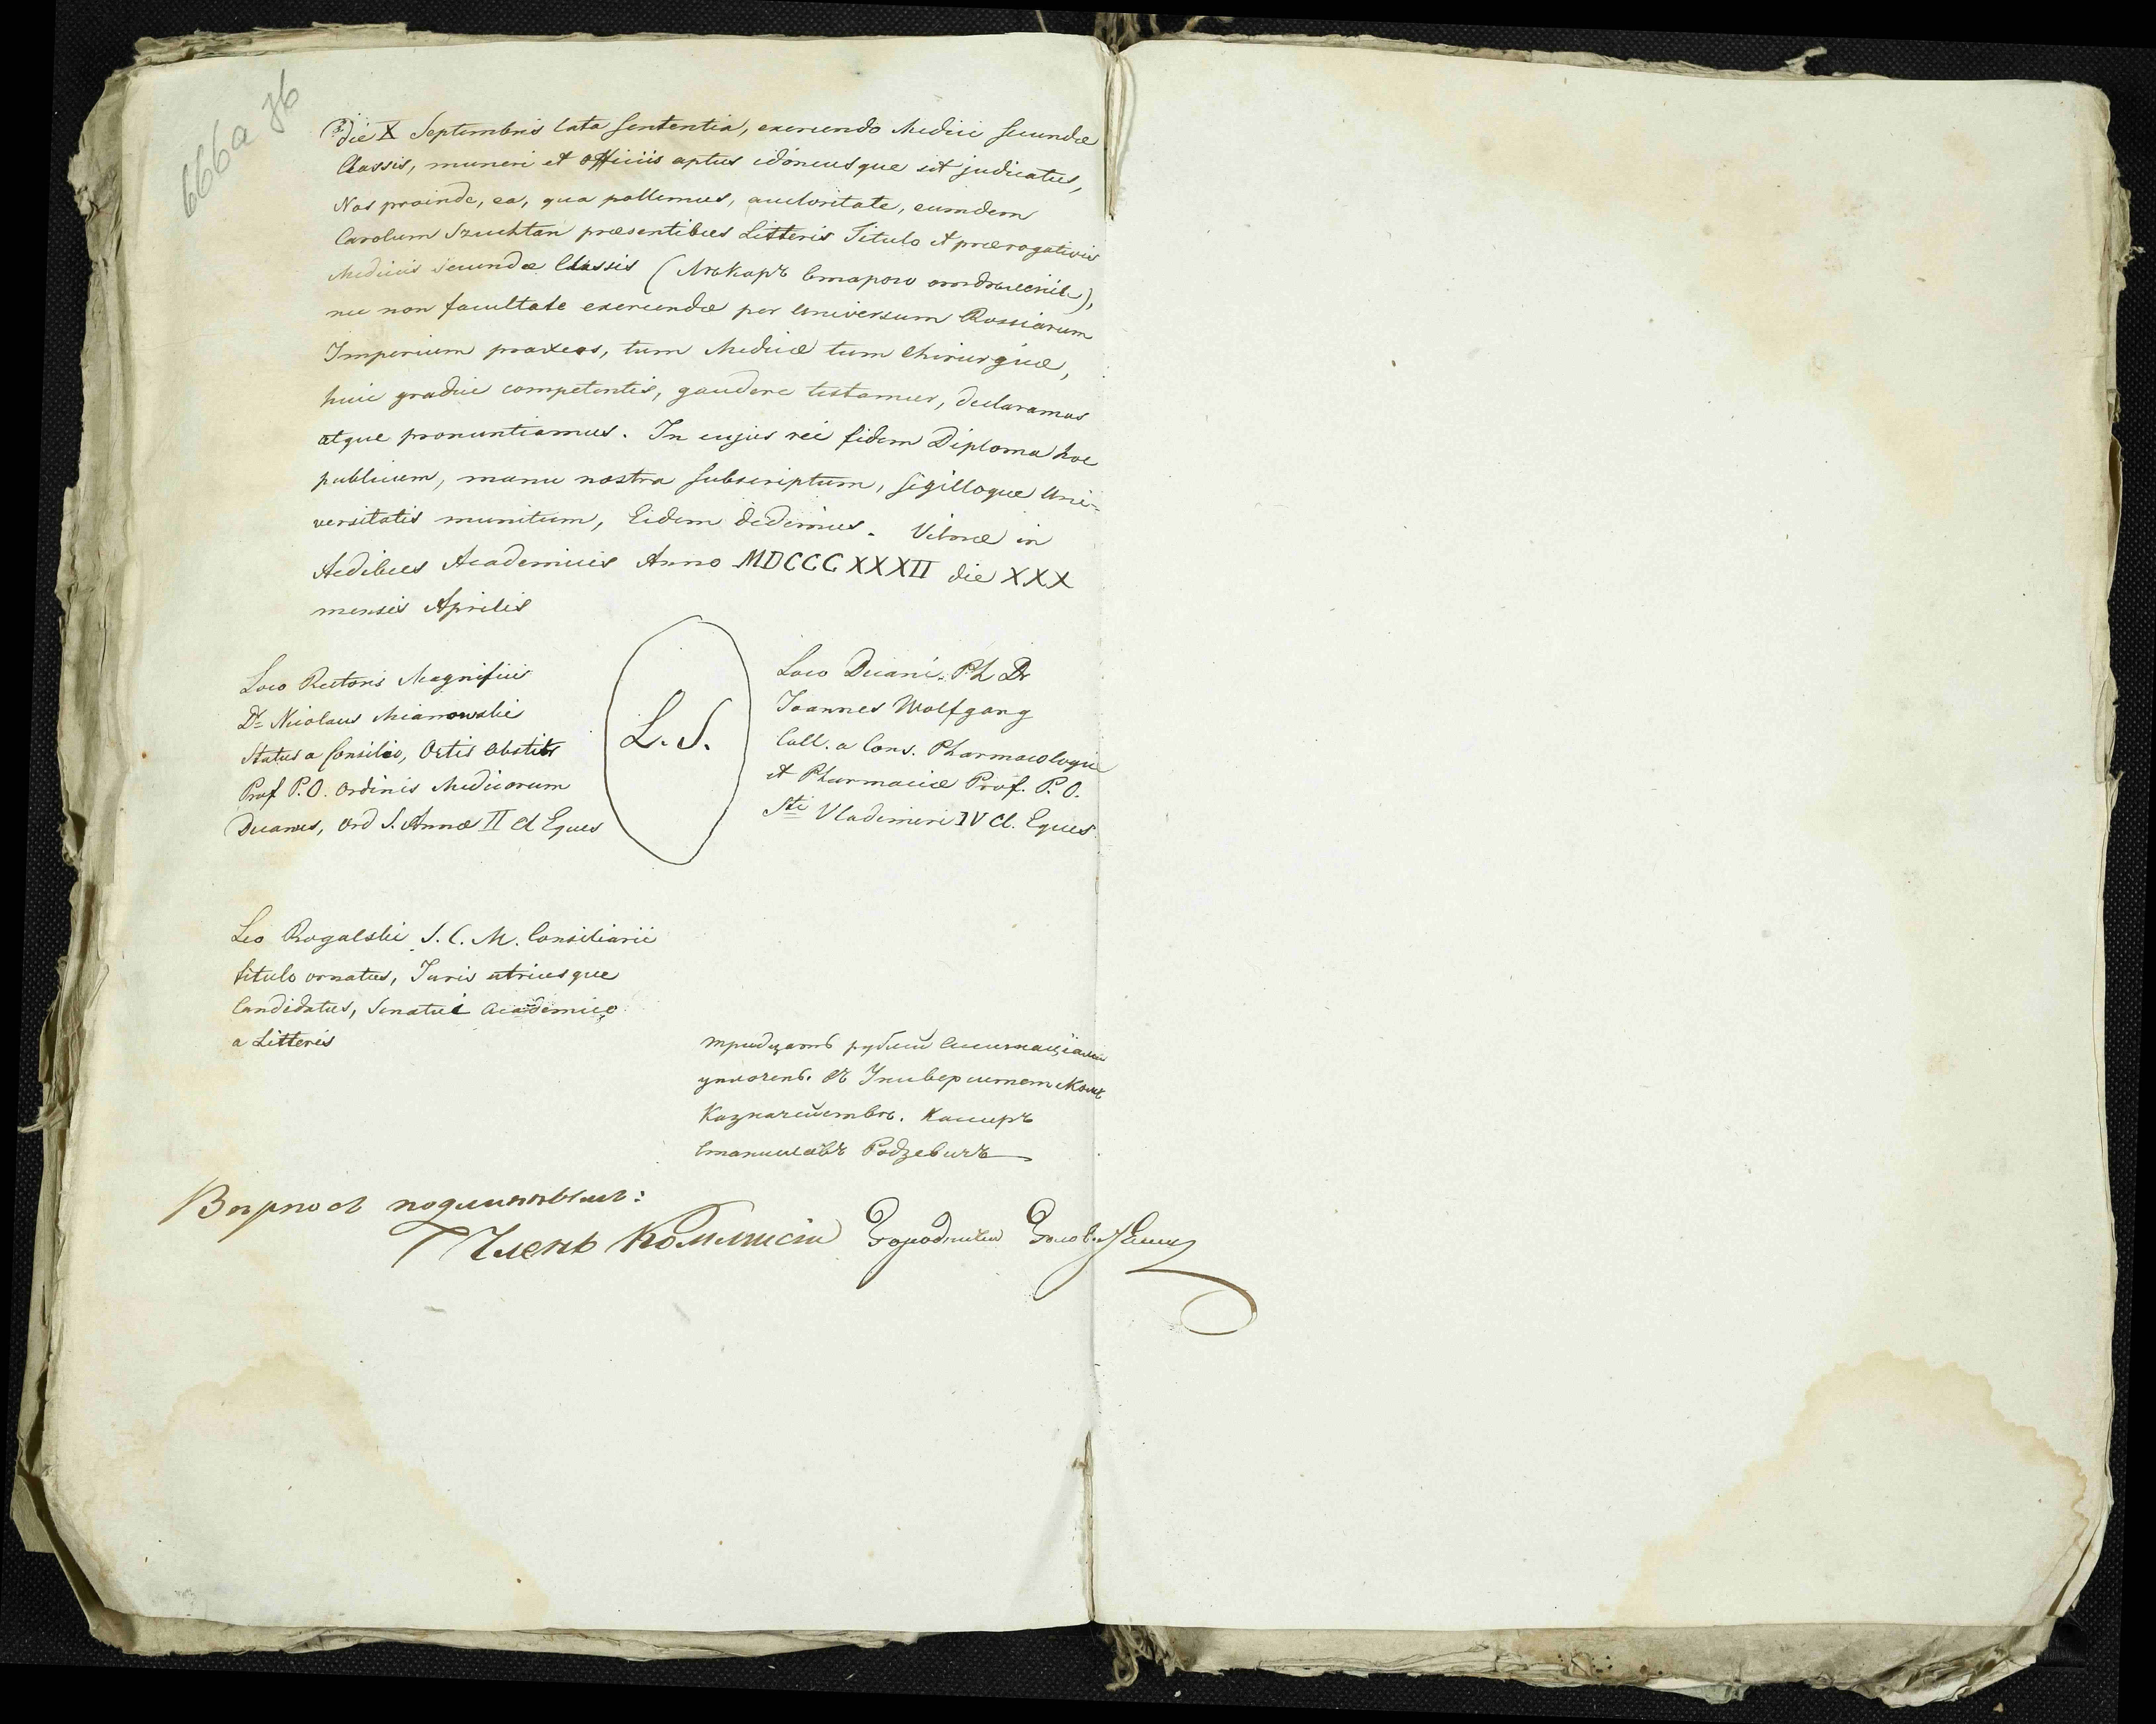 666a об
die X Septembris lata sententia, exercendo Medici secundæ
Classis, muneri et officiis aptus idóneusque sit judicatus,
Nos proinde, ea, qua pollemus, auctoritate, eumdem
Carolum Szuchtan præsentibus Litteris Titulo et prærogativis
Medicis secundæ Classis (Лѣкарь втараго отдѣленія),
nec non facultate exercendæ per universum Rossiarum
Imperium praxeos, tum Medicæ tum Chirurgicæ,
huic gradui competentis, gaudere testamur, declaramus
atque pronuntiamus. In cujus rei fidem Diploma hoc
publicum, manu nostra subscriptum, sigilloque Uni-
versitatis munitum, Eidem dedimus. Vilnæ in
Aedibus Academicis Anno MDCCCXXXII die XXX
mensis Aprilis
Loco Rectoris Magnifici
Dr Nicolaus Mianowski
Status a Consilio, Artis Obstetr
Prof P.O. Ordinis Medicorum
Decanus, Ord S. Annæ II Cl Eques
L. S.
Loco Decani. Ph Dr
Joannes Wolfgang
Coll. a Cons. Pharmacologiæ
et Pharmaciæ Prof. P. O.
Sti Vladimeri IV Cl. Eques.
Leo Rogalski S. C. M. Consiliarii
titulo ornatus, Juris utriusque
Candidatus, Senatui Academico
a Litteris
тридцать рублей Ассигнаціами
уплочены. въ Университетскомъ
Казначействѣ. Касиръ
Станиславъ Родзевичъ
Вѣрно съ подлиннымъ:
Членъ Коммисіи Городничій